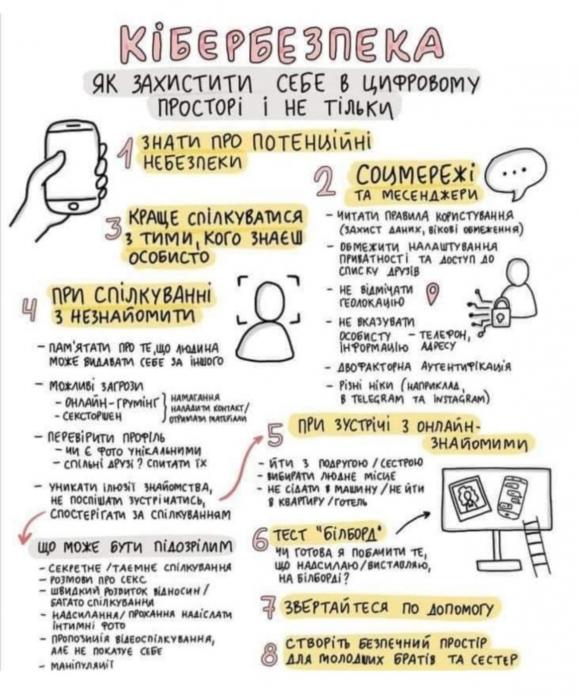 КІБЕРБЕЗПЕКА
ЯК ЗАХИСТИТИ СЕБЕ В ЦИФРОВОМУ
ПРОСТОРІ І НЕ ТІЛЬКИ
1 ЗНАТИ ПРО ПОТЕНЦІЙНІ
НЕБЕЗПЕКИ
2 СОЦМЕРЕЖІ
ТА МЕСЕНДЖЕРИ
- ЧИТАТИ ПРАВИЛА КОРИСТУВАННЯ
(ЗАХИСТ ДАНИХ, ВІКОВІ ОБМЕЖЕННЯ)
- ОБМЕЖИТИ НАЛАШТУВАННЯ
ПРИВАТНОСТІ ТА ДОСТУП ДО
СПИСКУ ДРУЗІВ
- НЕ ВІДМІЧАТИ
ГЕОЛОКАЦІЮ
- НЕ ВКАЗУВАТИ
ОСОБИСТУ - ТЕЛЕФОН,
ІНФОРМАЦІЮ АДРЕСУ
- ДВОФАКТОРНА АУТЕНТИФІКАЦІЯ
- РІЗНІ НІКИ (НАПРИКЛАД,
В TELEGRAM ТА INSTAGRAM)
3 КРАЩЕ СПІЛКУВАТИСЯ
З ТИМИ, КОГО ЗНАЄШ
ОСОБИСТО
4 ПРИ СПІЛКУВАННІ
З НЕЗНАЙОМИТИ
- ПАМ'ЯТАТИ ПРО ТЕ, ЩО ЛЮДИНА
МОЖЕ ВИДАВАТИ СЕБЕ ЗА ІНШОГО
- МОЖЛИВІ ЗАГРОЗИ
- ОНЛАЙН-ГРУМІНГ
- СЕКСТОРШЕН
НАМАГАННЯ
НАЛАДИТИ КОНТАКТ/
ОТРИМАТИ МАТЕРІАЛИ
- ПЕРЕВІРИТИ ПРОФІЛЬ
- ЧИ Є ФОТО УНІКАЛЬНИМИ
- СПІЛЬНІ ДРУЗІ? СПИТАТИ ЇХ
- УНИКАТИ ІЛЮЗІЇ ЗНАЙОМСТВА,
НЕ ПОСПІШАТИ ЗУСТРІЧАТИСЬ,
СПОСТЕРІГАТИ ЗА СПІЛКУВАННЯМ
ЩО МОЖЕ БУТИ ПІДОЗРІЛИМ
- СЕКРЕТНЕ/ТАЄМНЕ СПІЛКУВАННЯ
- РОЗМОВИ ПРО СЕКС
- ШВИДКИЙ РОЗВИТОК ВІДНОСИН/
БАГАТО СПІЛКУВАННЯ
- НАДСИЛАННЯ/ПРОХАННЯ НАДІСЛАТИ
ІНТИМНІ ФОТО
- ПРОПОЗИЦІЯ ВІДЕОСПІЛКУВАННЯ,
АЛЕ НЕ ПОКАЗУЄ СЕБЕ
- МАНІПУЛЯЦІЇ
5 ПРИ ЗУСТРІЧІ З ОНЛАЙН-
ЗНАЙОМИМИ
- ЙТИ З ПОДРУГОЮ/СЕСТРОЮ
- ВИБИРАТИ ЛЮДНЕ МІСЦЕ
- НЕ СІДАТИ В МАШИНУ/НЕ ЙТИ
В КВАРТИРУ/ГОТЕЛЬ
6 ТЕСТ "БІЛБОРД"
ЧИ ГОТОВА Я ПОБАЧИТИ ТЕ,
ЩО НАДСИЛАЮ/ВИСТАВЛЯЮ,
НА БІЛБОРДІ?
7 ЗВЕРТАЙТЕСЯ ПО ДОПОМОГУ
8 СТВОРІТЬ БЕЗПЕЧНИЙ ПРОСТІР
ДЛЯ МОЛОДШИХ БРАТІВ ТА СЕСТЕР